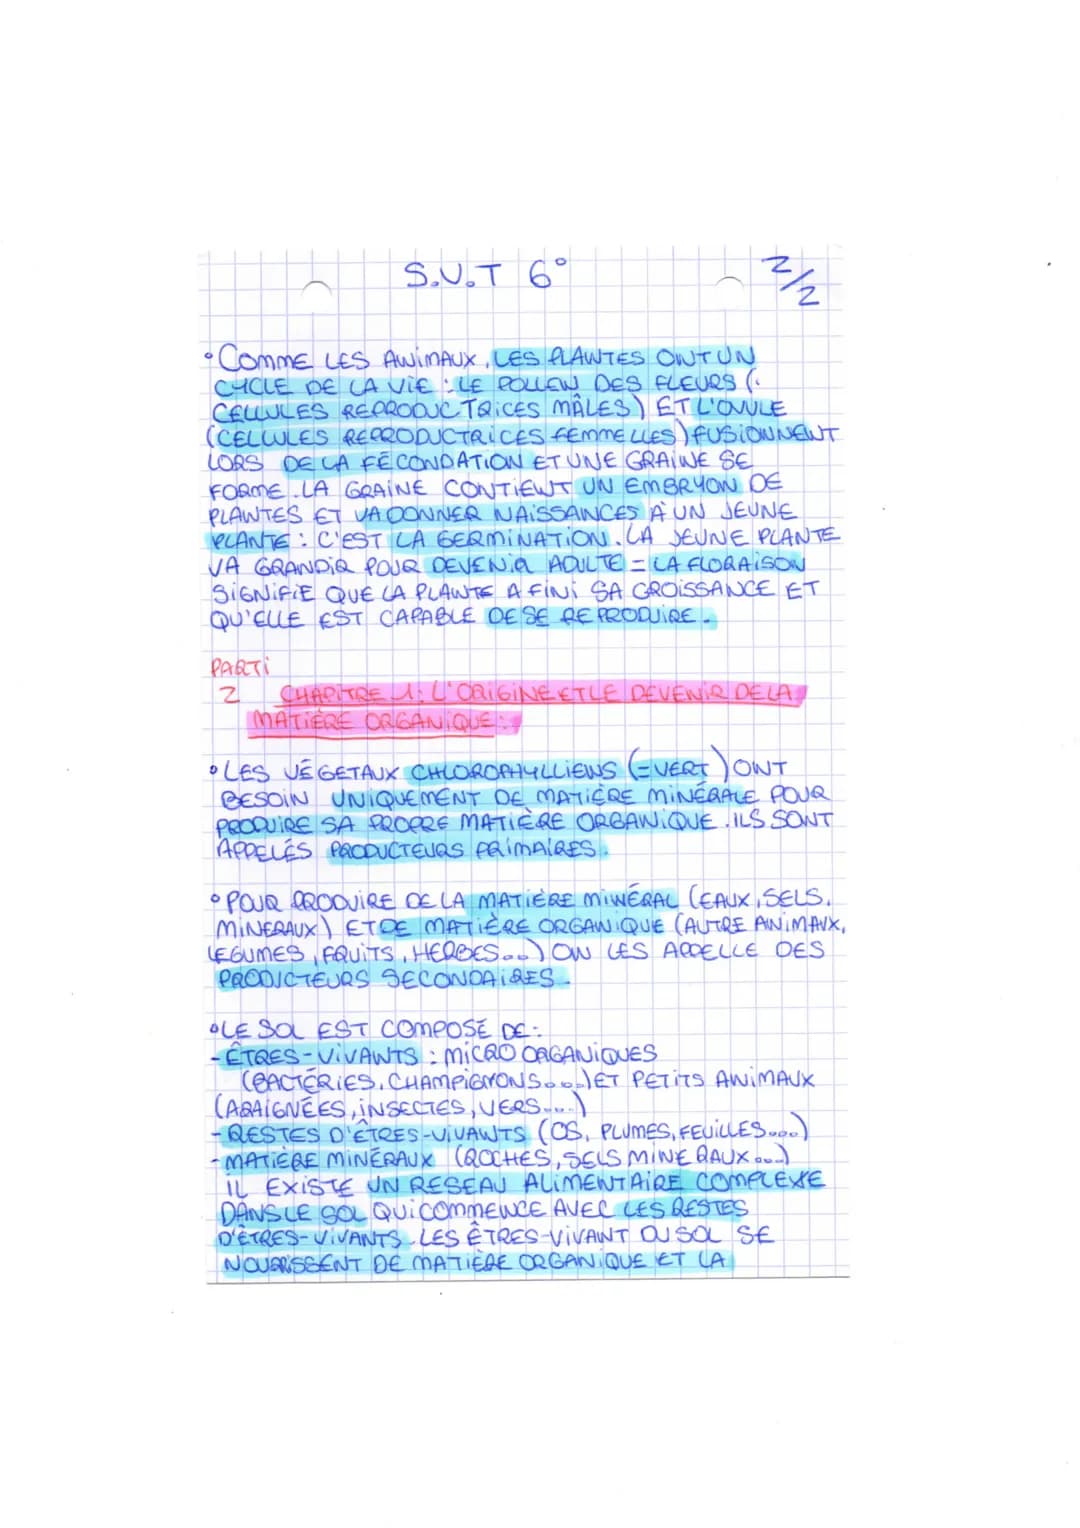 S.V.T 6°
2/2
• COMME LES ANIMAUX, LES PLANTES ONT UN
CYCLE DE LA VIE : LE POLLEN DES FLEURS (.
CELLULES REPRODUCTRICES MÂLES) ET L'OVULE
(CELLULES REPRODUCTRICES FEMMELLES) FUSIONNENT
LORS DE LA FÉCONDATION ET UNE GRAINE SE
FORME. LA GRAINE CONTIENT UN EMBRYON DE
PLANTES ET VA DONNER NAISSANCES A UN JEUNE
PLANTE : C'EST LA GERMINATION. LA JEUNE PLANTE
VA GRANDIR POUR DEVENIR ADULTE = LA FLORAISON
SIGNIFIE QUE LA PLANTE A FINI SA CROISSANCE ET
QU'ELLE EST CAPABLE DE SE REPRODUIRE.
PARTI
2 CHAPITRE 1: L'ORIGINE ET LE DEVENIR DE LA
MATIÈRE ORGANIQUE :
• LES VÉGETAUX CHLOROPHYLLIENS (=VERT) ONT
BESOIN UNIQUEMENT DE MATIÈRE MINÉRALE POUR
PRODUIRE SA PROPRE MATIÈRE ORGANIQUE. ILS SONT
APPELÉS PRODUCTEURS PRIMAIRES.
• POUR PRODUIRE DE LA MATIÈRE MINÉRAL (EAUX, SELS,
MINERAUX) ET DE MATIÈRE ORGANIQUE (AUTRE ANIMAUX,
LEGUMES, FRUITS, HERBES...) ON LES APPELLE DES
PRODICTEURS SECONDAIRES.
• LE SOL EST COMPOSÉ DE :
- ÊTRES-VIVANTS : MICRO ORGANIQUES
(BACTÉRIES, CHAMPIGNONS....) ET PETITS ANIMAUX
(ARAIGNÉES, INSECTES, VERS....)
- RESTES D'ÊTRES-VIVANTS (OS, PLUMES, FEUILLES....)
- MATIÈRE MINÉRAUX (ROCHES, SELS MINERAUX....)
IL EXISTE UN RESEAU ALIMENTAIRE COMPLEXE
DANS LE SOL QUI COMMENCE AVEC LES RESTES
D'ÊTRES-VIVANTS. LES ÊTRES-VIVANT DU SOL SE
NOURISSENT DE MATIÈRE ORGANIQUE ET LA